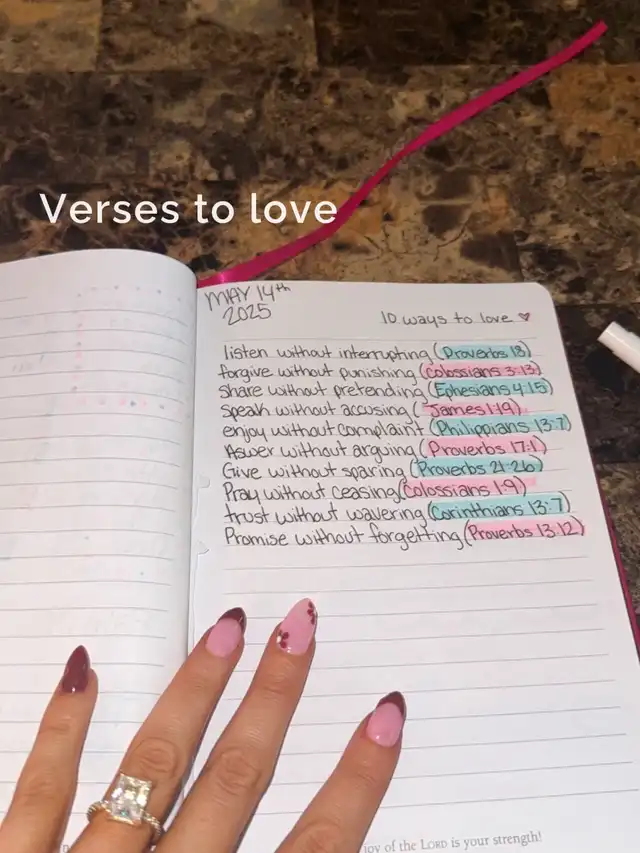 Verses to love
MAY 14th
2025
10 ways to love ♥
listen without interrupting (Proverbs 18)
forgive without punishing (Colossians 3:13)
Share without pretending (Ephesians 4:15)
Speak without accusing (James 1:19)
enjoy without complaint (Philippians 13:7)
Aswer without arguing (Proverbs 17:1)
Give without sparing (Proverbs 21:26)
Pray without ceasing (Colossians 1:9)
trust without wavering (Corinthians 13:7)
Promise without forgetting (Proverbs 13:12)
joy of the LORD is your strength!